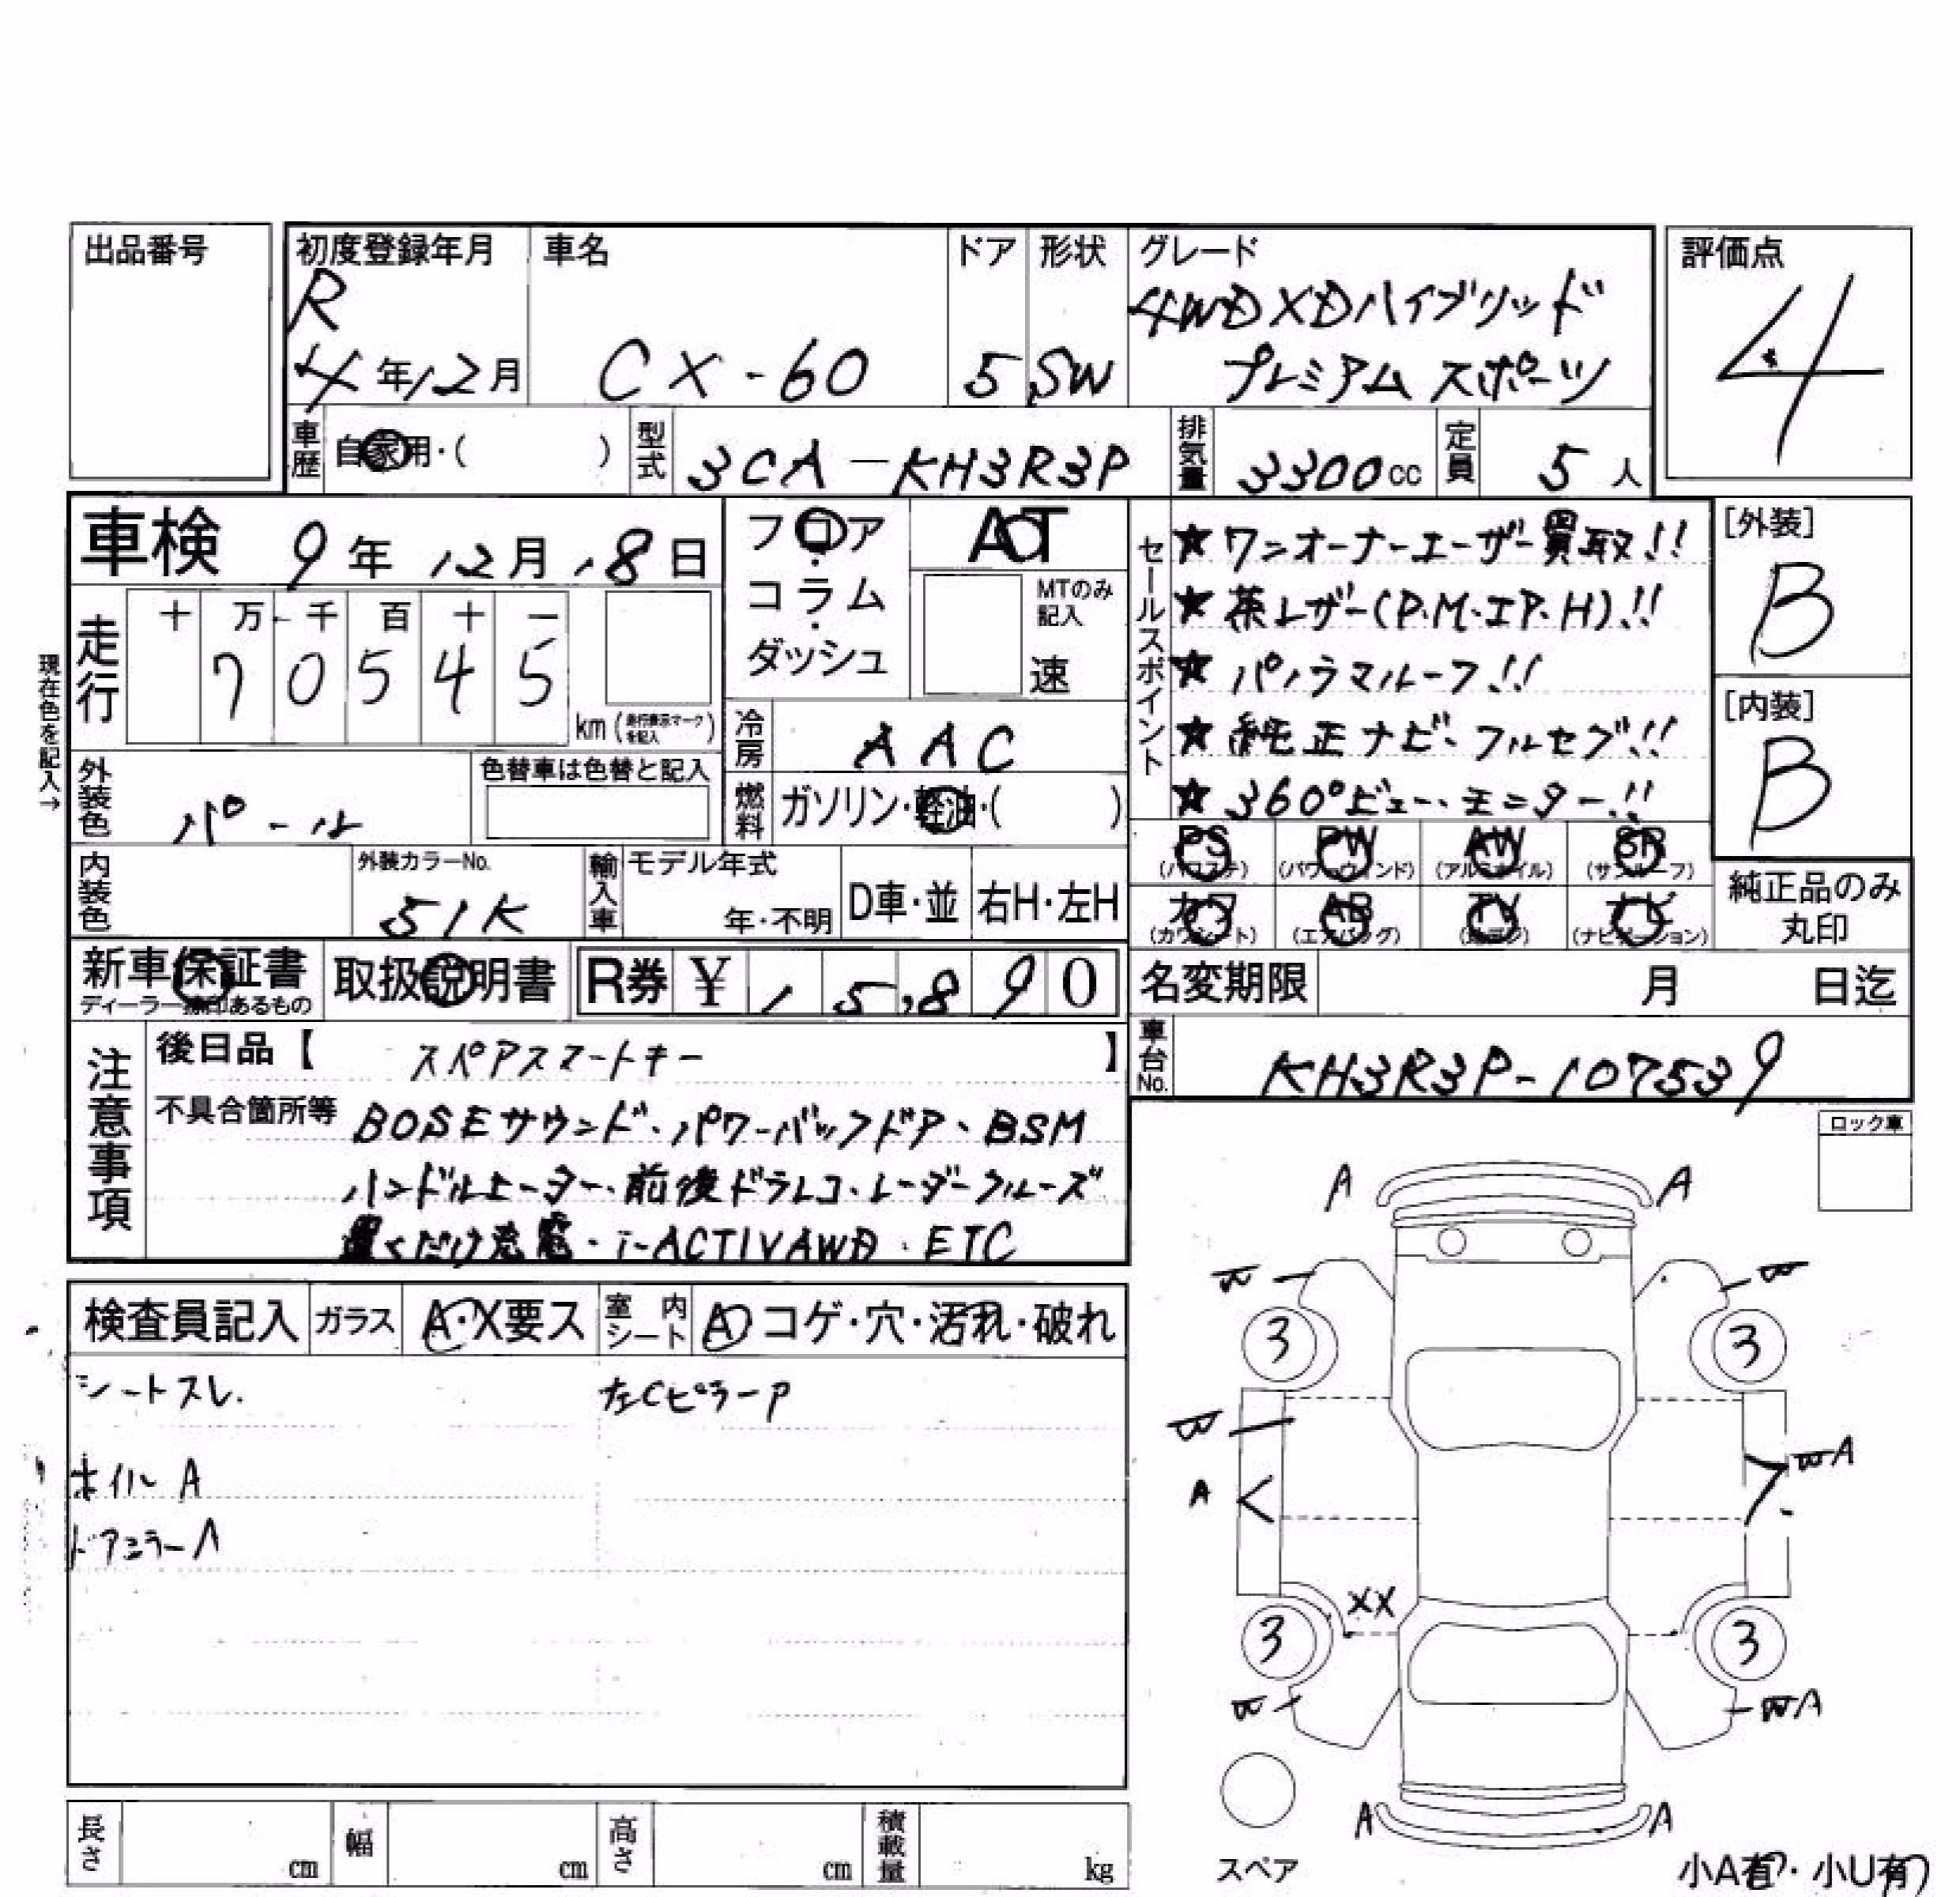 出品番号
初度登録年月 車名 ドア 形状 グレード 評価点
R 4年12月 CX-60 5 SW 4WD XDハイブリッド
プレミアム スポーツ
4
車歴 自家用・( ) 型式 3CA-KH3R3P 排気量 3300cc 定員 5人
車検 9年12月18日
フロア・コラム・ダッシュ
AT
MTのみ記入
速
走行 十 万 千 百 十 一
7 0 5 4 5
km (走行表示マークを記入)
現在色を記入→
冷房 AAC
外装色 パール
色替車は色替と記入
燃料 ガソリン・軽油・( )
内装色
外装カラーNo. 51K
輸入車 モデル年式 年・不明 D車・並 右H・左H
セールスポイント
★ワンオーナーユーザー買取!!
★茶レザー(P.M.IP.H)!!
★パノラマルーフ!!
★純正ナビ・フルセグ!!
★360°ビューモニター!!
[外装]
B
[内装]
B
PS (パワステ) PW (パワーウィンド) AW (アルミホイル) SR (サンルーフ)
カワ (カワシート) AB (エアバッグ) TV (地デジ) ナビ (ナビゲーション)
純正品のみ丸印
新車保証書 ディーラー捺印あるもの
取扱説明書
R券 ¥ 15,890
名変期限 月 日迄
車台No. KH3R3P-107539
注意事項
後日品【 スペアスマートキー 】
不具合箇所等 BOSEサウンド・パワーバックドア・BSM
ハンドルヒーター・前後ドラレコ・レーダークルーズ
置くだけ充電・i-ACTIVAWD・ETC
検査員記入 ガラス A・X要ス 室内シート A コゲ・穴・汚れ・破れ
シートスレ. 左CピラーP
ホイル A
ドアミラーA
ロック車
A A
W W
3 3
W
WA
A
XX
3 3
W WA
A A
スペア
小A有・小U有
長さ cm 幅 cm 高さ cm 積載量 kg